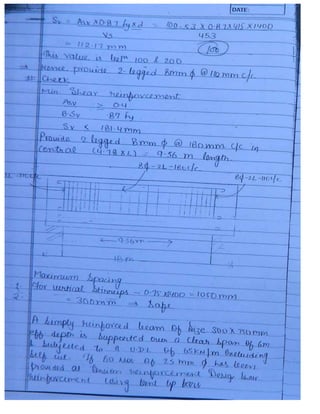 DATE:
Sv = Asv x 0.87 fy x d = 100.53 x 0.87 x 415 x 1400
Vs 453
= 112.17 mm (100)
This value is betn 100 & 200
→ Hence provide 2-legged 8mm ϕ @ 110 mm c/c.
Check
Min. Shear reinforcement
Asv ≥ 0.4
B.Sv .87 fy
Sv ≤ 181.4 mm
Provide 2 legged 8mm ϕ @ 180 mm c/c in
central (4.78 x 2) = 9.56 m length.
8ϕ-2L-180 c/c.
8ϕ-2L-110 c/c.
9.56m
Maximum Spacing
1. For vertical Stirrups - 0.75 x 1400 = 1050 mm
2. = 300mm → Safe
A Simply reinforced beam of size 300 x 700mm
eff depth is supported over a clear span of 6m
& subjected to a UDL of 65 KN/m including
self wt. If 6 Nos of 25 mm ϕ has been
provided as tension reinforcement Design Shear
reinforcement using bent up bars